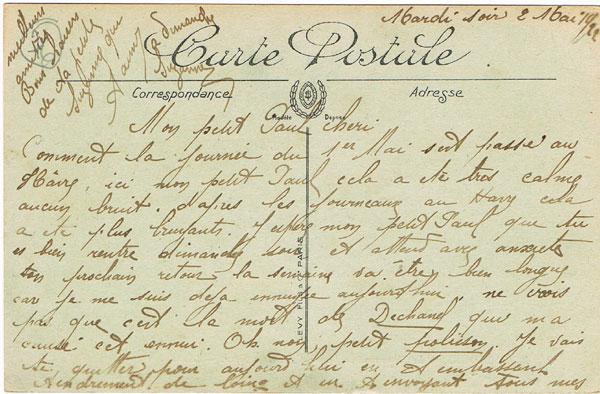 Mardi soir 2 Mai 1922
Carte Postale
Correspondance
Adresse
Modèle Déposé
Mon petit Paul chéri
Comment la journée du 1er Mai s'est passé au
Hâvre, ici mon petit Paul cela a été très calme
aucun bruit. d'apres les journeaux au Havre cela
a été plus bruyants. J'espère mon petit Paul que tu
es bien rentré dimanche soir et attend avec anxiete
ton prochain retour la semaine va être bien longue
car je me suis deja ennuyée aujourd'hui ne crois
pas que c'est la mort de Dechanel qui m'a
causé cet ennui. Oh non petit polisson. Je vais
te quitter pour aujourd'hui en t'embrassent
tendrement de loin et en t'envoyant tous mes
meilleurs
Bons baisers
de ta petite
Suzanne que
t'aime
à dimanche
Suzanne
LEVY FILS & Cie PARIS